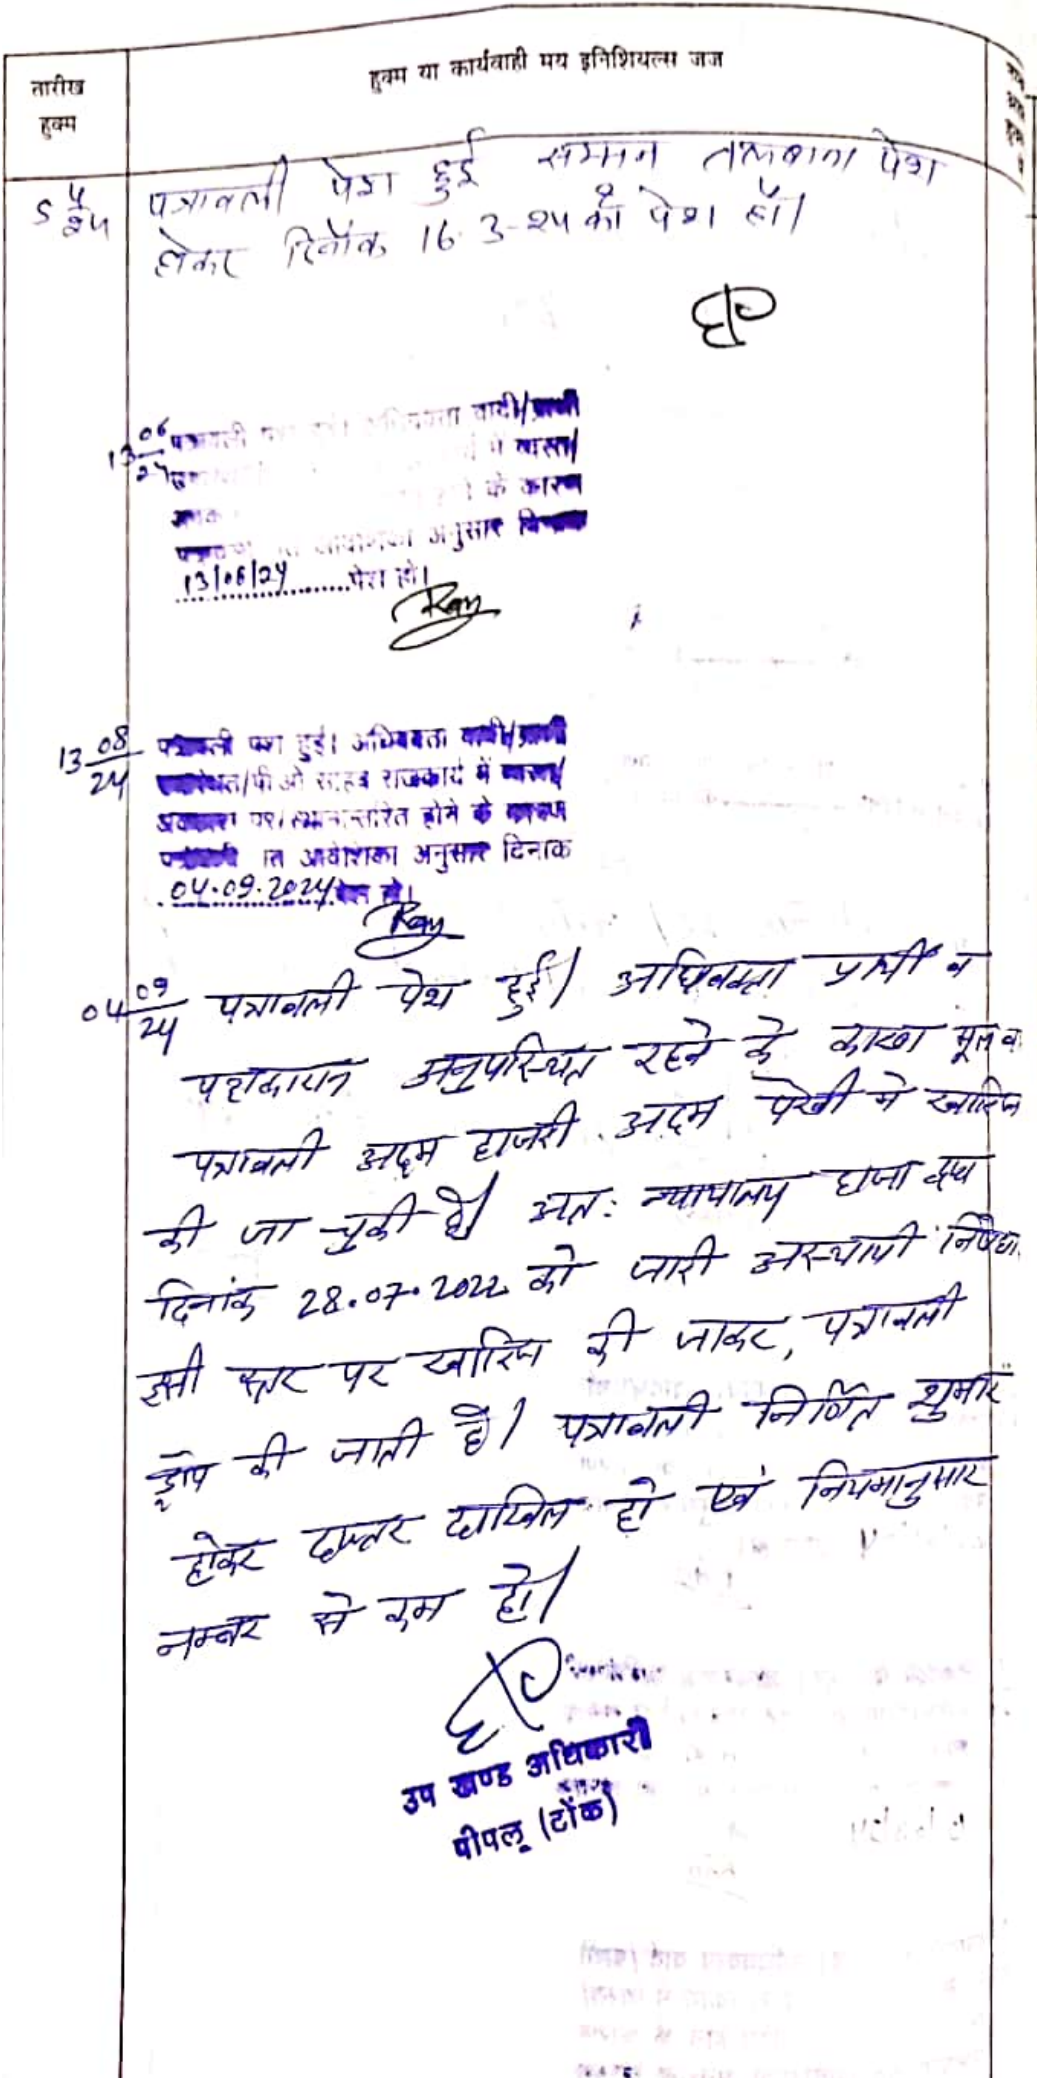 तारीख
हुक्म
हुक्म या कार्यवाही मय इनिशियल्स जज
5 4/24 पत्रावली पेश हुई सम्मन तलबाना पेश
होकर दिनांक 16-3-24 को पेश हों।
13 06/24 पत्रावली वादी/प्रार्थी
में व्यस्त/
के कारण
अनुसार दिनांक
13/08/24 पेश हो।
Ray
13 08/24 पत्रावली पेश हुई। अधिवक्ता वादी/प्रार्थी
उपस्थित/पी ओ साहब राजकार्य में व्यस्त/
अवकाश पर/स्थानान्तरित होने के कारण
पत्रावली गत आदेशिका अनुसार दिनांक
04.09.2024 पेश हो।
Ray
04 09/24 पत्रावली पेश हुई। अधिवक्ता प्रार्थी व
पक्षकारान अनुपस्थित रहने के कारण मूल वाद
पत्रावली अदम हाजरी अदम पेरवी में खारिज
की जा चुकी है। अत: न्यायालय द्वारा
दिनांक 28.07.2022 को जारी अस्थायी निषेधा
इसी स्तर पर खारिज की जाकर, पत्रावली
ड्रॉप की जाती है। पत्रावली निर्णित शुमार
होकर दफ्तर दाखिल हो एवं नियमानुसार
नम्बर से कम हो।
उप खण्ड अधिकारी
पीपलू (टोंक)